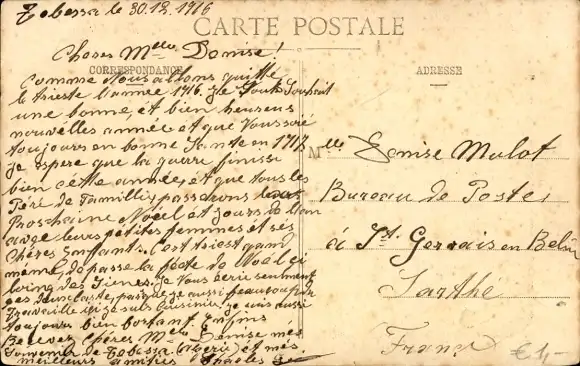 Tebessa le 30.12.1916
CARTE POSTALE
Chères Melle Denise!
CORRESPONDANCE
ADRESSE
Comme Nous allons quitté
le trieste l'année 1916. Je Vous Souhait
une bonne, et bien heureus
nouvelles année et que Vous soré
toujours en bonne Sante en 1917.
Je espere que la guerre finissi
bien cette année, et que tous les
Père de Familli, passerons leurs
Prochaine Noël et jours de l'an
avec leurs petites femmes et ses
Chères Enfants. C'est triest quan
même, de passe la fête de Noël si
loing des Siens. Je Vous écrie seulment
travaille
toujours bien portant. Enfins
Recevez Chères Melle Denise mes
Souvenir de Tebessa (Algerie) et mes
meilleurs amitiés Charles
Melle Denise Mulot
Bureau de Postes
à St. Gervais en Belin
Sarthe
France
€ 1,-